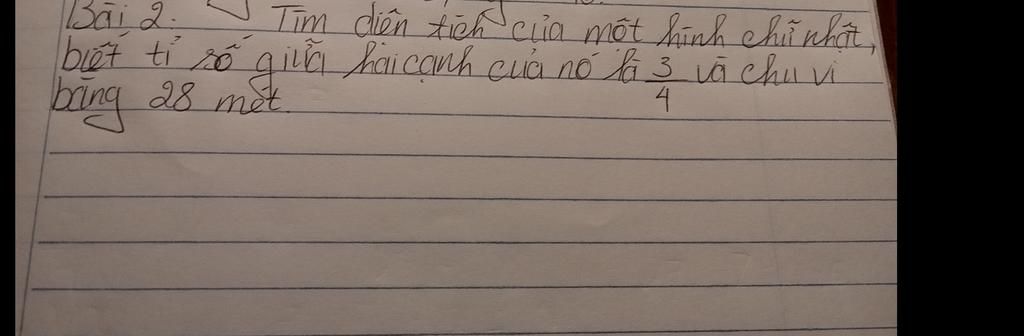 Bài 2. Tìm diện tích của một hình chữ nhật,
biết tỉ số giữa hai cạnh của nó là 3/4 và chu vi
bằng 28 mét.